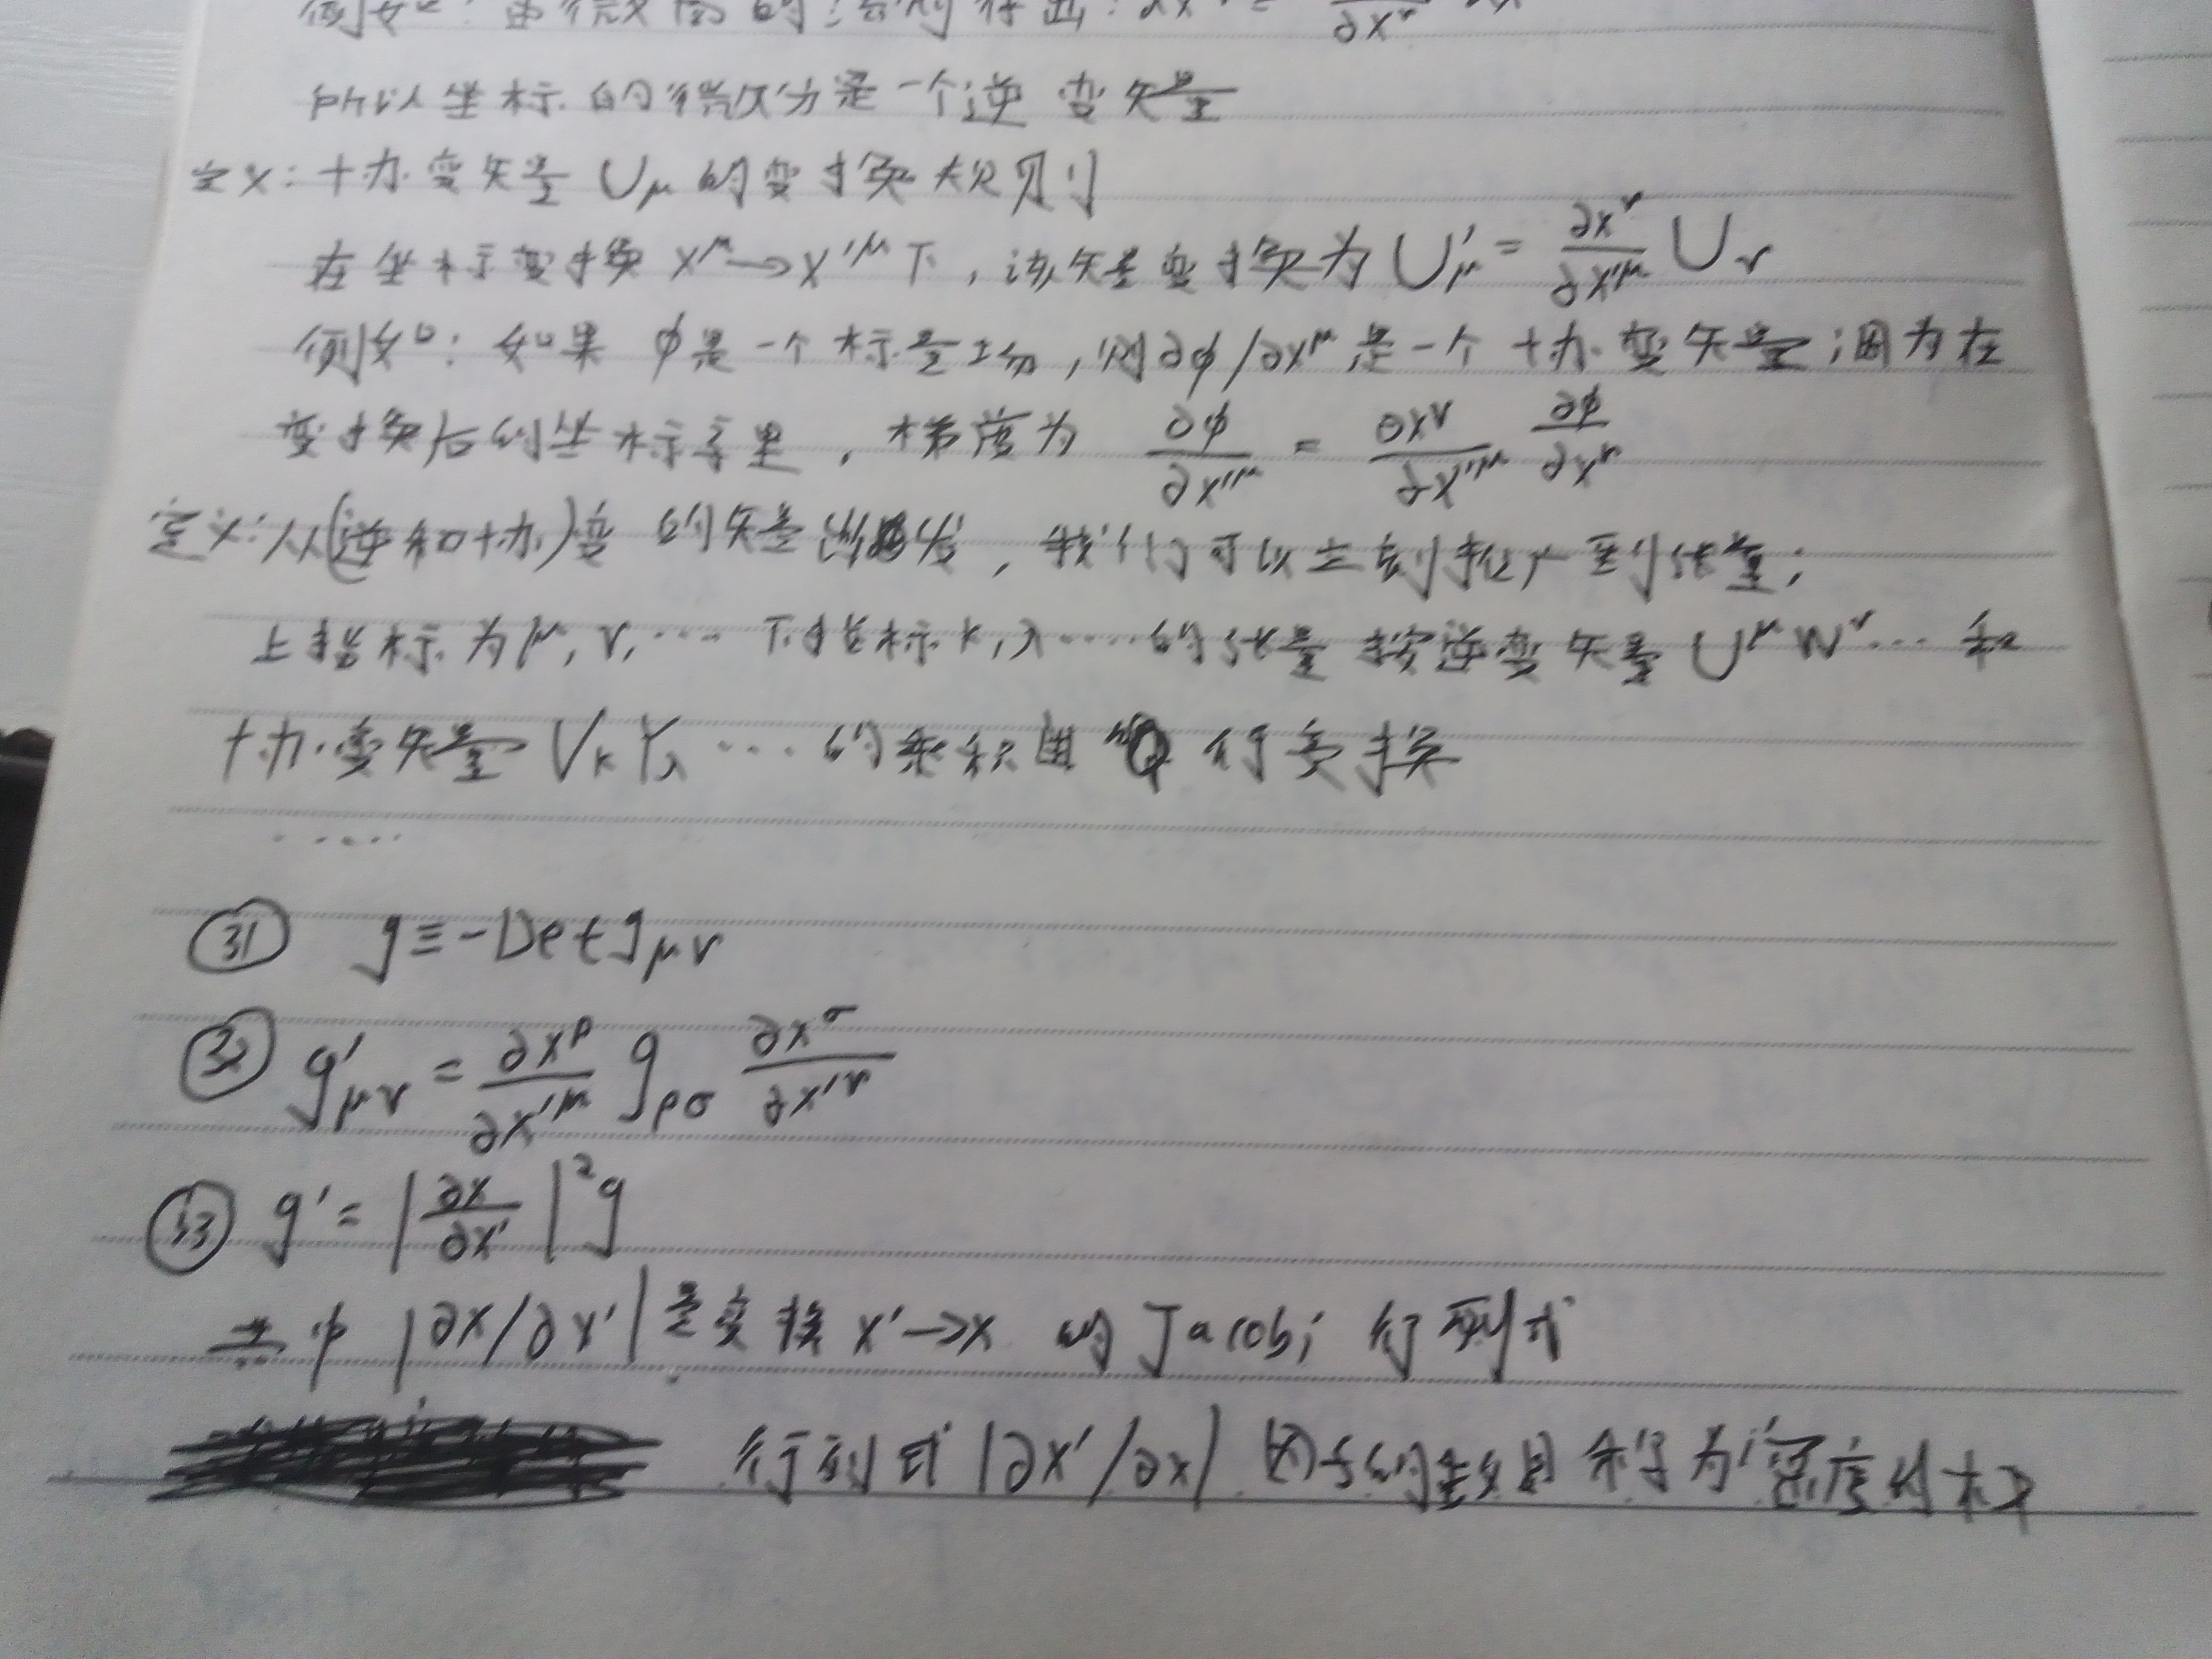 例如：由微分的法则得出：dx'^μ = ∂x^ν
所以坐标的微分是一个逆变矢量
定义：协变矢量 U_μ 的变换规则
在坐标变换 x^μ→x'^μ下，该矢量变换为 U'_μ = ∂x^ν/∂x'^μ U_ν
例如：如果 φ是一个标量场，则∂φ/∂x^μ 是一个协变矢量；因为在
变换后的坐标系里，梯度为 ∂φ/∂x'^μ = ∂x^ν/∂x'^μ ∂φ/∂x^ν
定义：从(逆和协)变的矢量出发，我们可以立刻推广到张量；
上指标为μ,ν,… 下指标κ,λ……的张量按逆变矢量 U^μ W^ν… 和
协变矢量 V_κ Y_λ …的乘积 行变换
……
㉛ g≡-Det g_μν
㉜ g'_μν = ∂x^ρ/∂x'^μ g_ρσ ∂x^σ/∂x'^ν
㉝ g' = |∂x/∂x'|² g
其中 |∂x/∂x'| 是变换 x'→x 的 Jacobi 行列式
行列式 |∂x'/∂x| 因子的数目称为密度的权